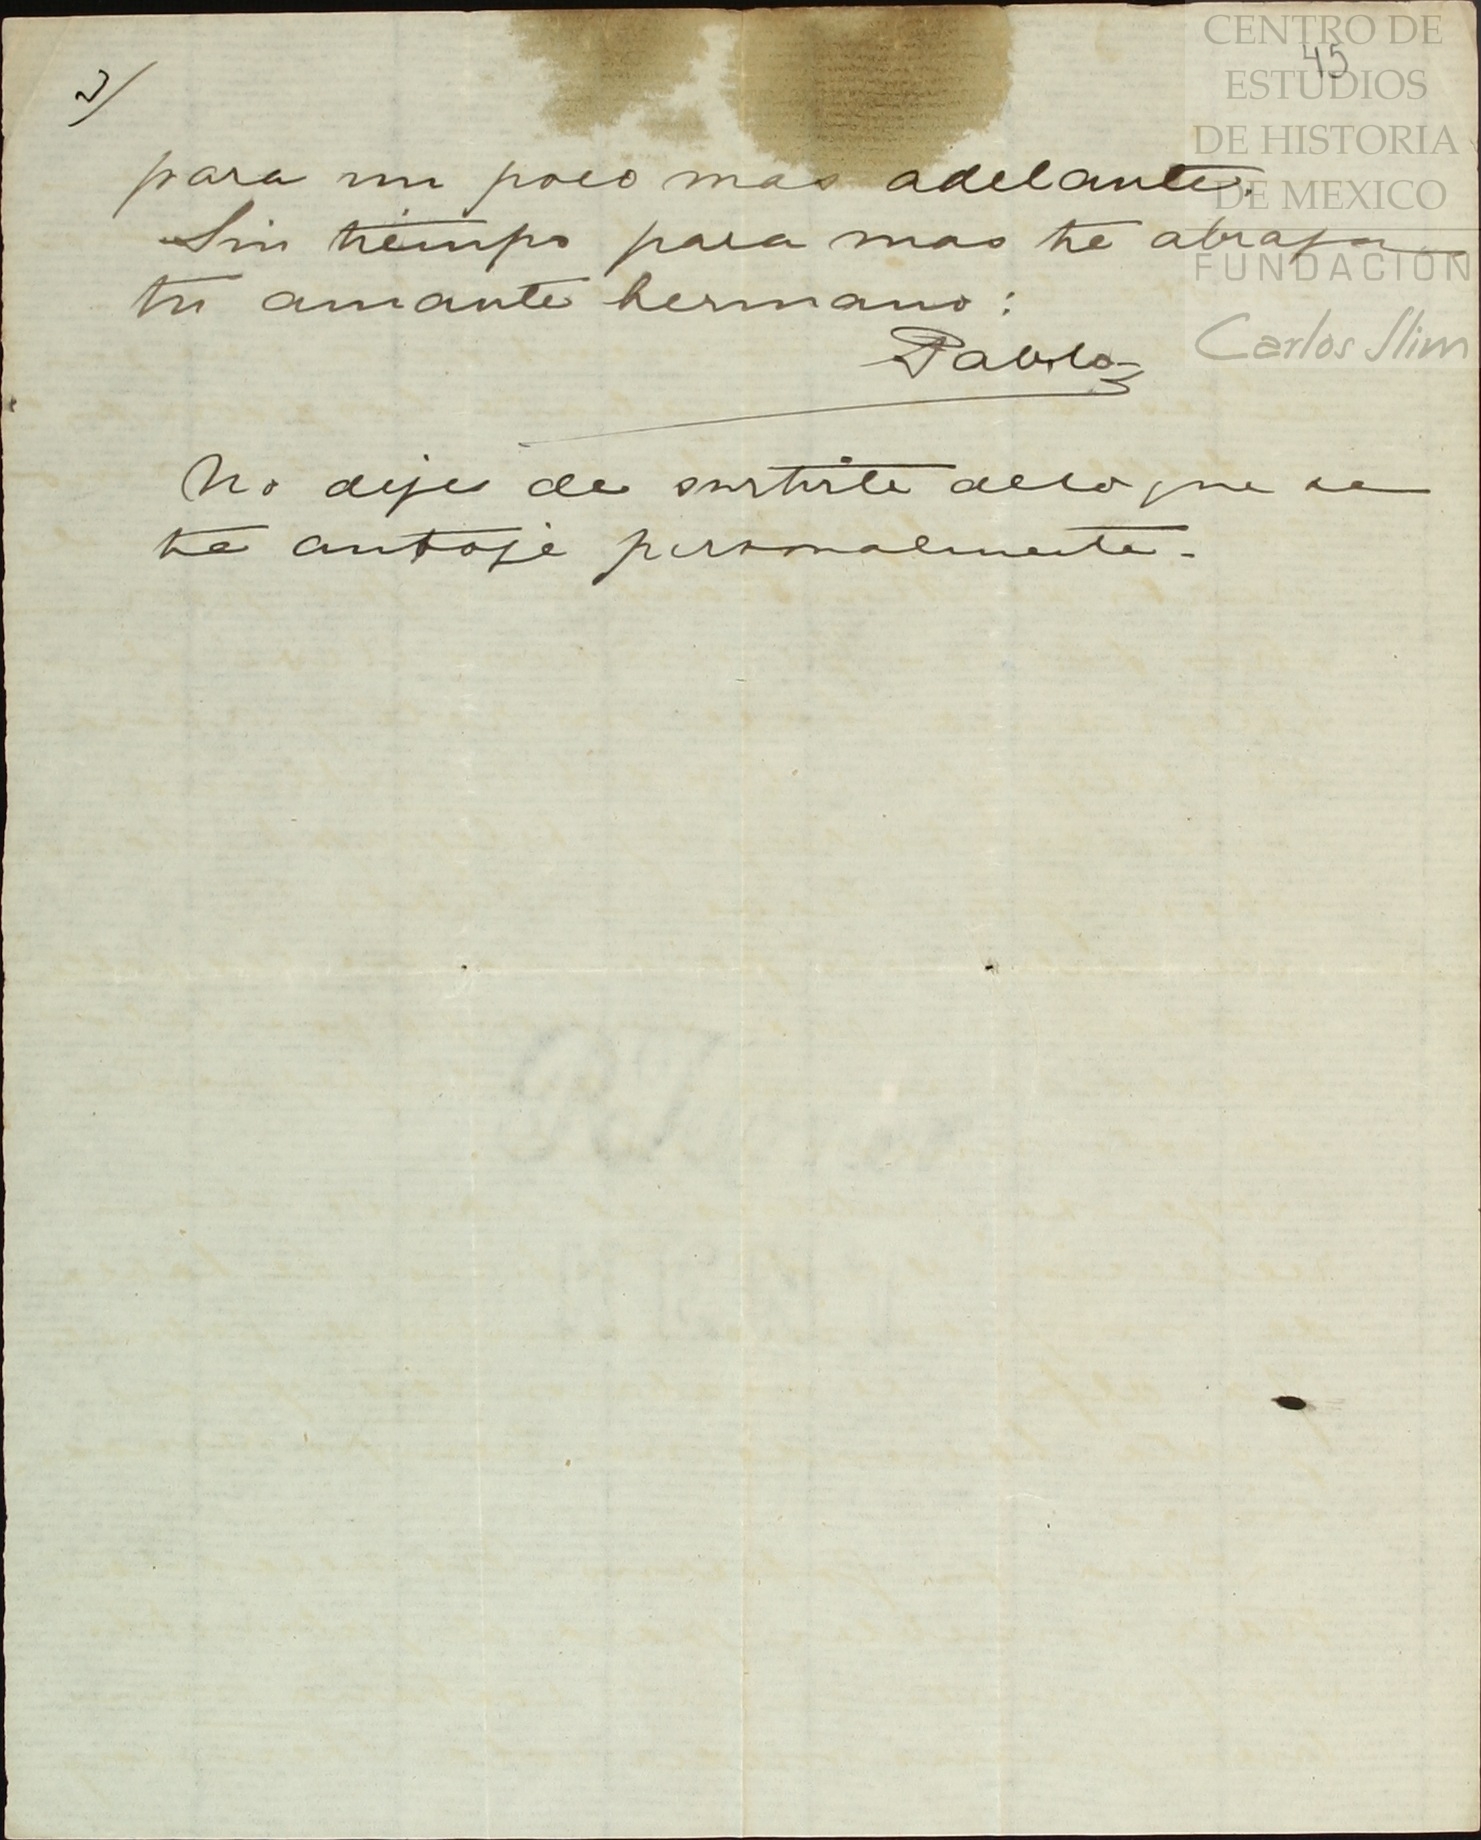 2/
45
para un poco mas adelante.
Sin tiempo para mas te abraza
tu amante hermano:
Pablo
No dejes de surtirte de lo que se
te antoje personalmente.
CENTRO DE
ESTUDIOS
DE HISTORIA
DE MEXICO
FUNDACIÓN
Carlos Slim